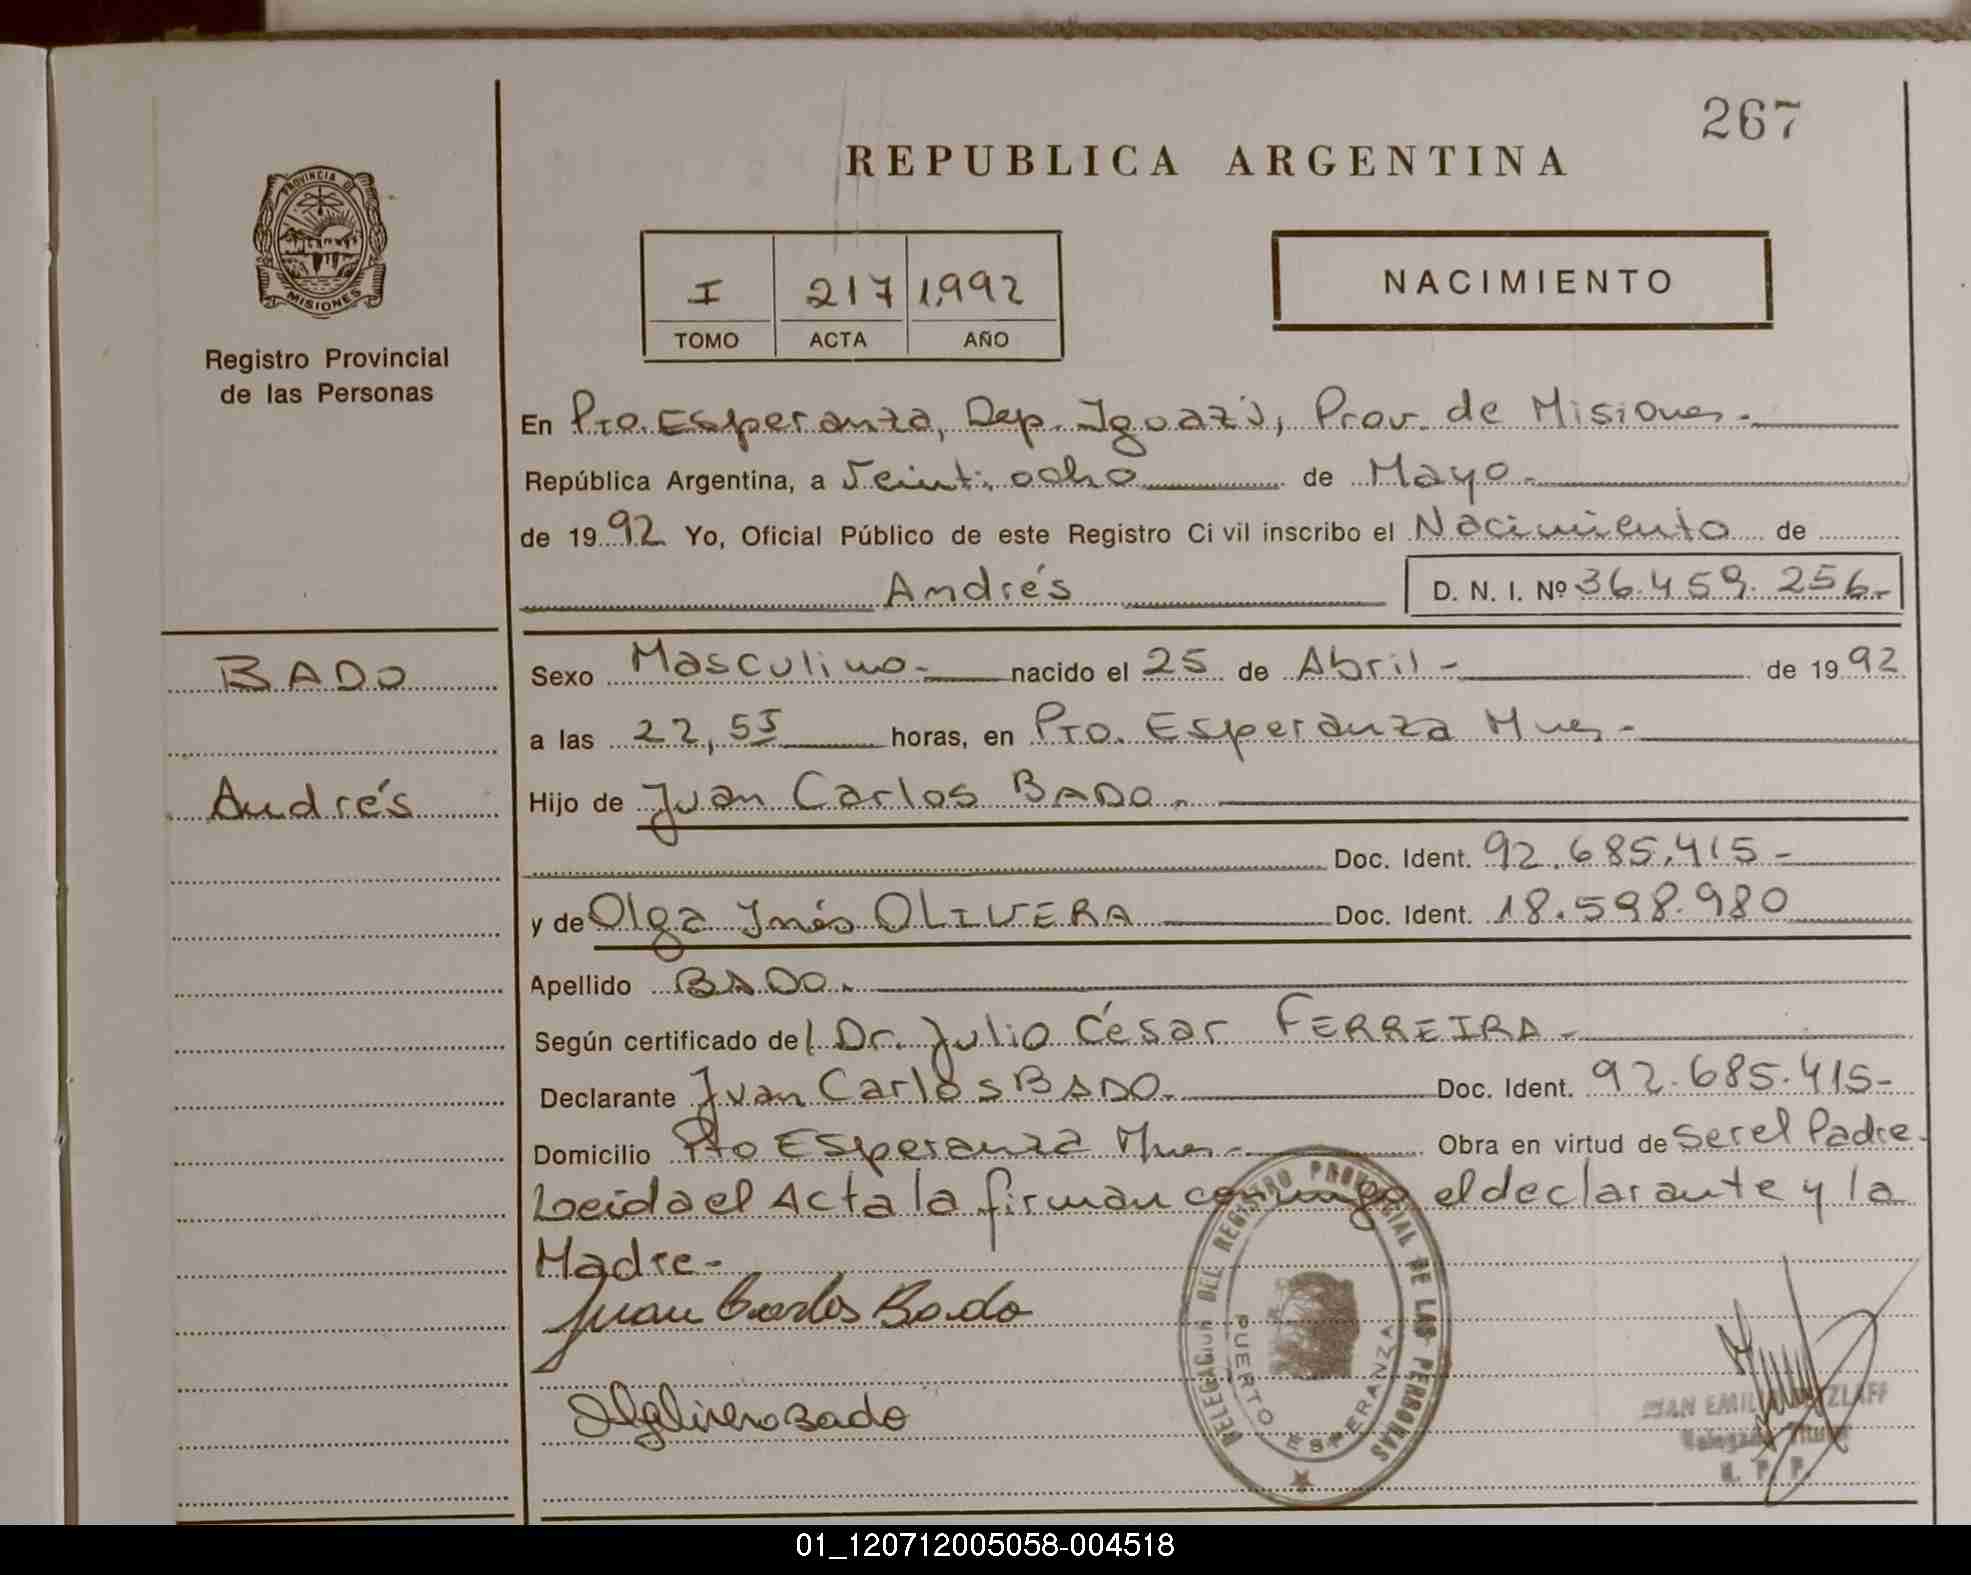 267
REPUBLICA ARGENTINA
PROVINCIA DE
MISIONES
Registro Provincial
de las Personas
I 217 1992
TOMO ACTA AÑO
NACIMIENTO
En Pto. Esperanza, Dep. Iguazú, Prov. de Misiones.-
República Argentina, a Veintiocho de Mayo.-
de 1992 Yo, Oficial Público de este Registro Civil inscribo el Nacimiento de
Andrés D. N. I. Nº 36.459.256.-
BADO
Andrés
Sexo Masculino.- nacido el 25 de Abril - de 1992
a las 22,55 horas, en Pto. Esperanza Mnes.-
Hijo de Juan Carlos BADO.-
Doc. Ident. 92.685.415-
y de Olga Inés OLIVERA Doc. Ident. 18.598.980
Apellido BADO.
Según certificado del Dr. Julio César FERREIRA.-
Declarante Juan Carlos BADO.- Doc. Ident. 92.685.415-
Domicilio Pto Esperanza Mnes.- Obra en virtud de ser el Padre.
Leida el Acta la firman conmigo el declarante y la
Madre.-
Juan Carlos Bado
DELEGACION DEL REGISTRO PROVINCIAL DE LAS PERSONAS
PUERTO ESPERANZA
Titular
R. P. P.
01_120712005058-004518